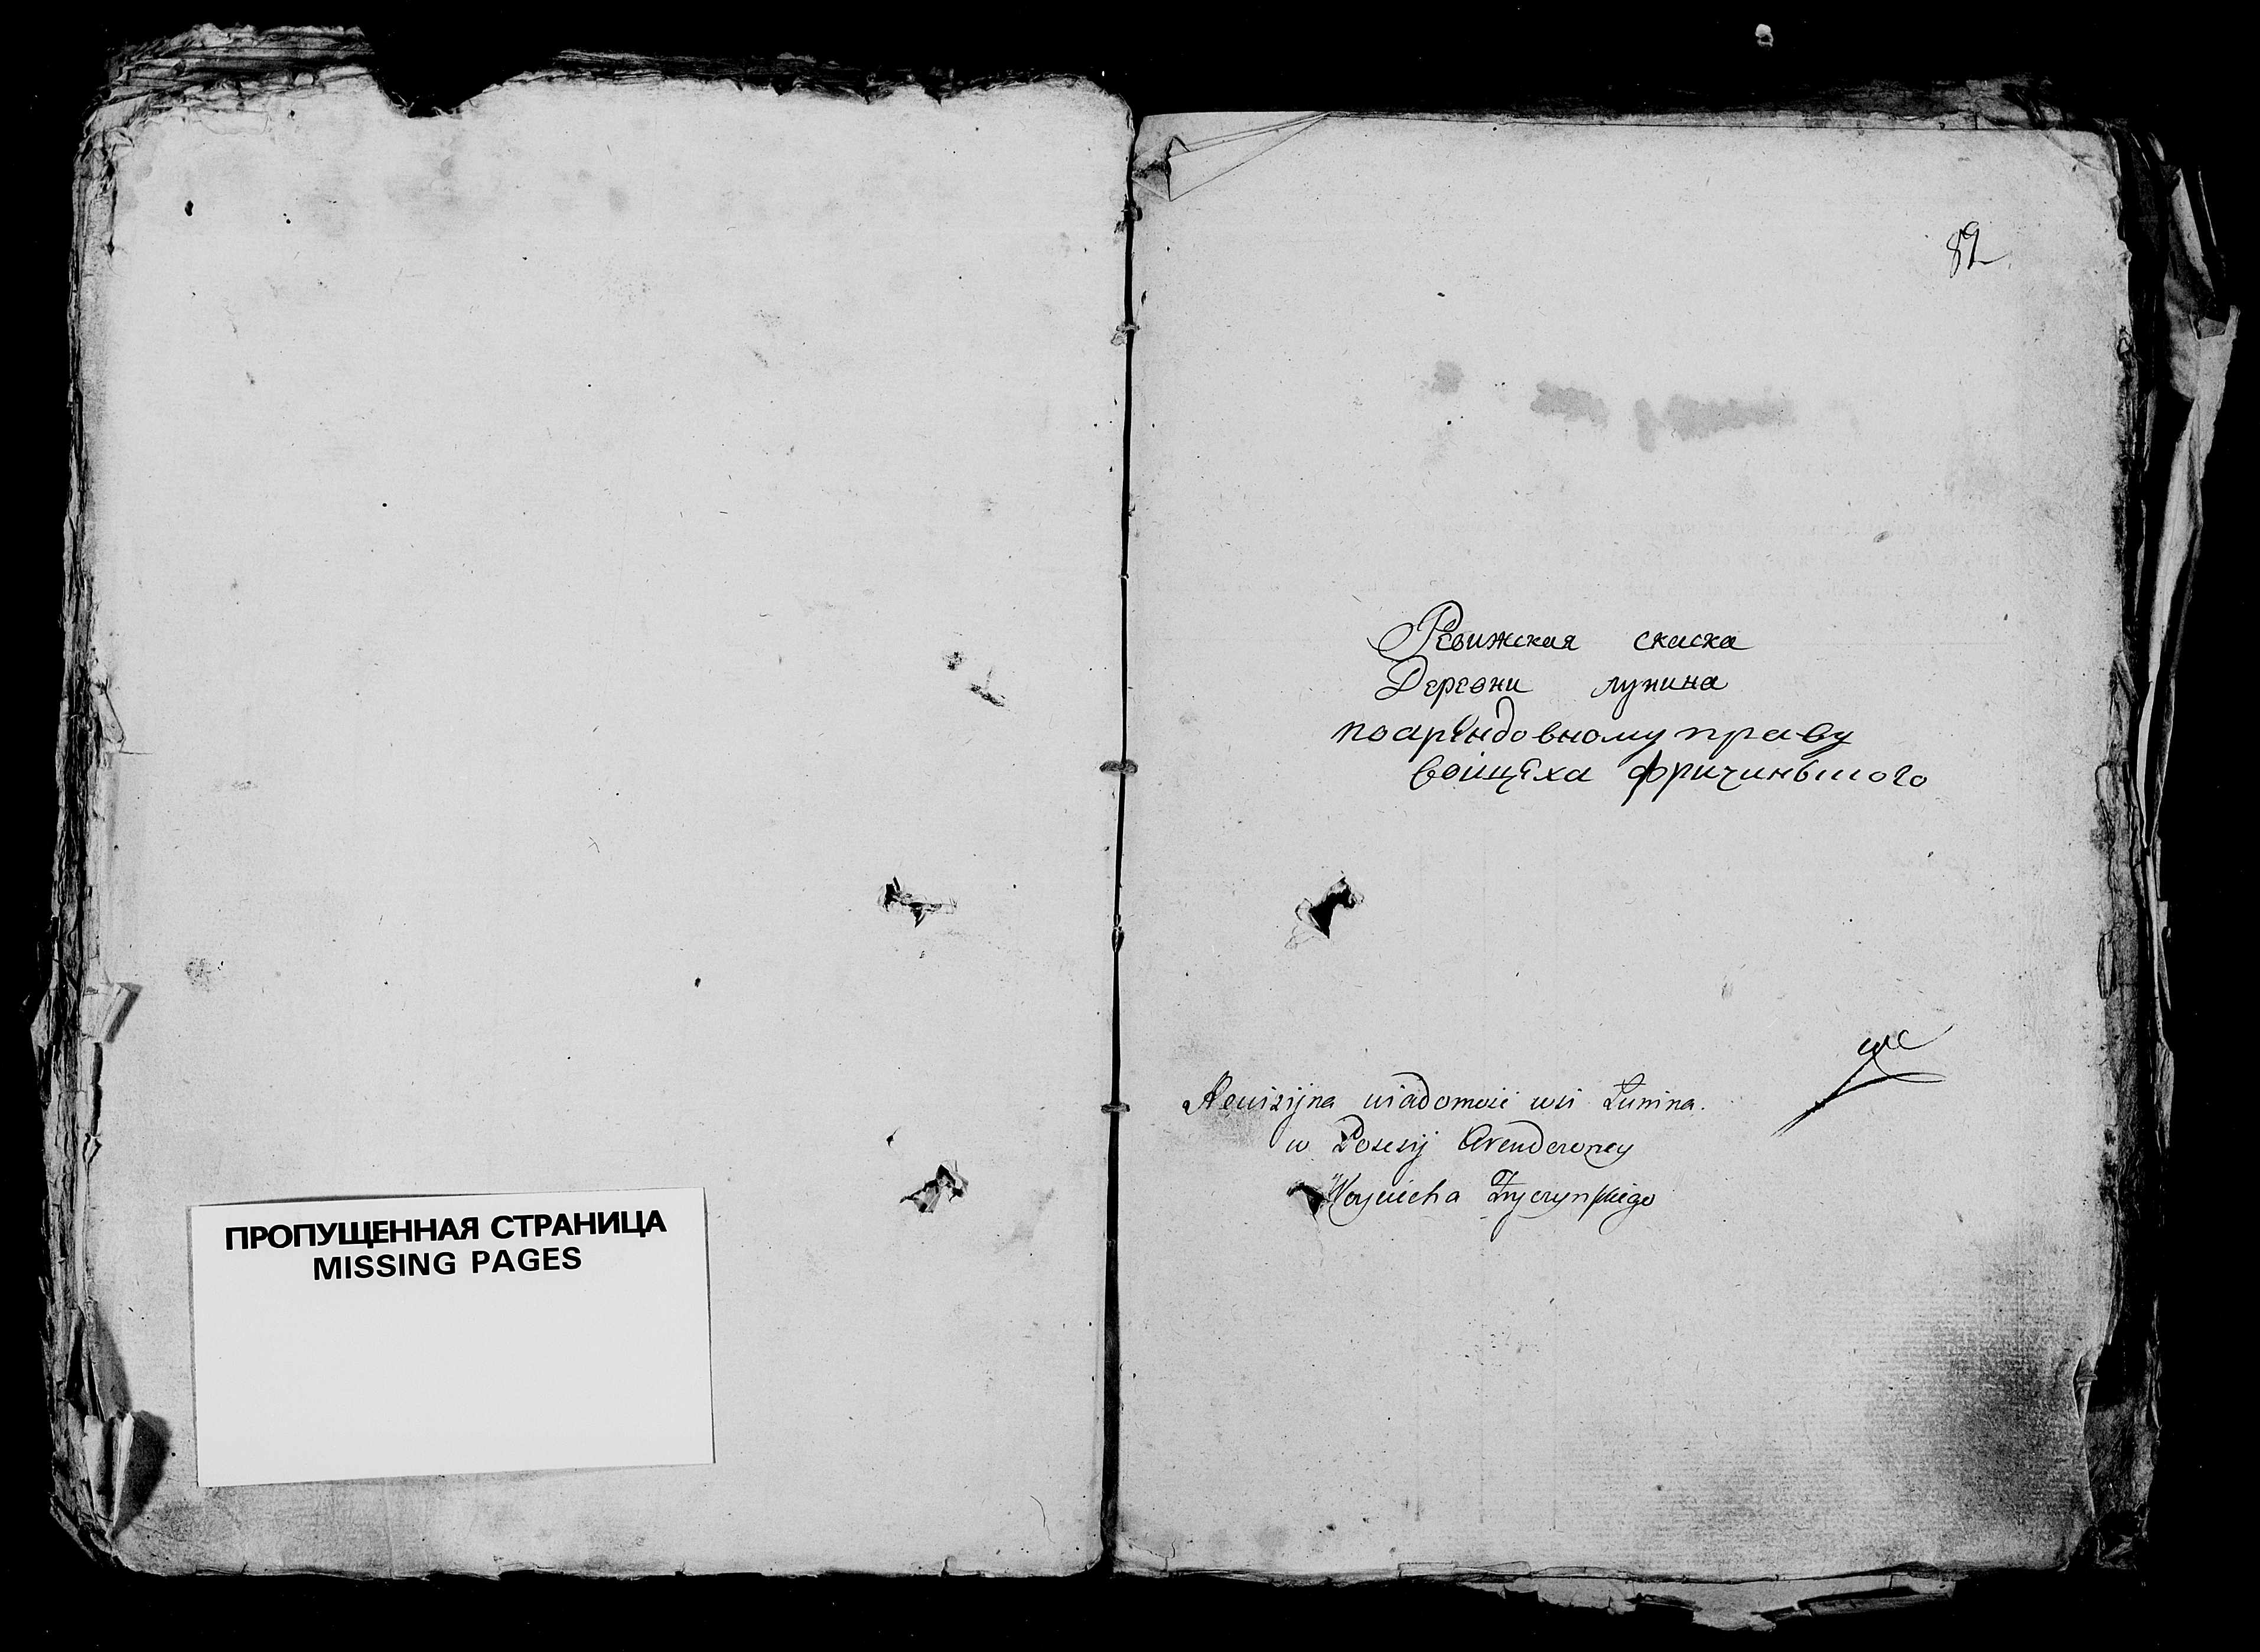 ПРОПУЩЕННАЯ СТРАНИЦА
MISSING PAGES
82
Ревижская скаска
Деревни лунина
поарендовному праву
воицеха
Rewizijna wiadomość wsi Łunina.
w Posesij Arendowney
Woyciecha